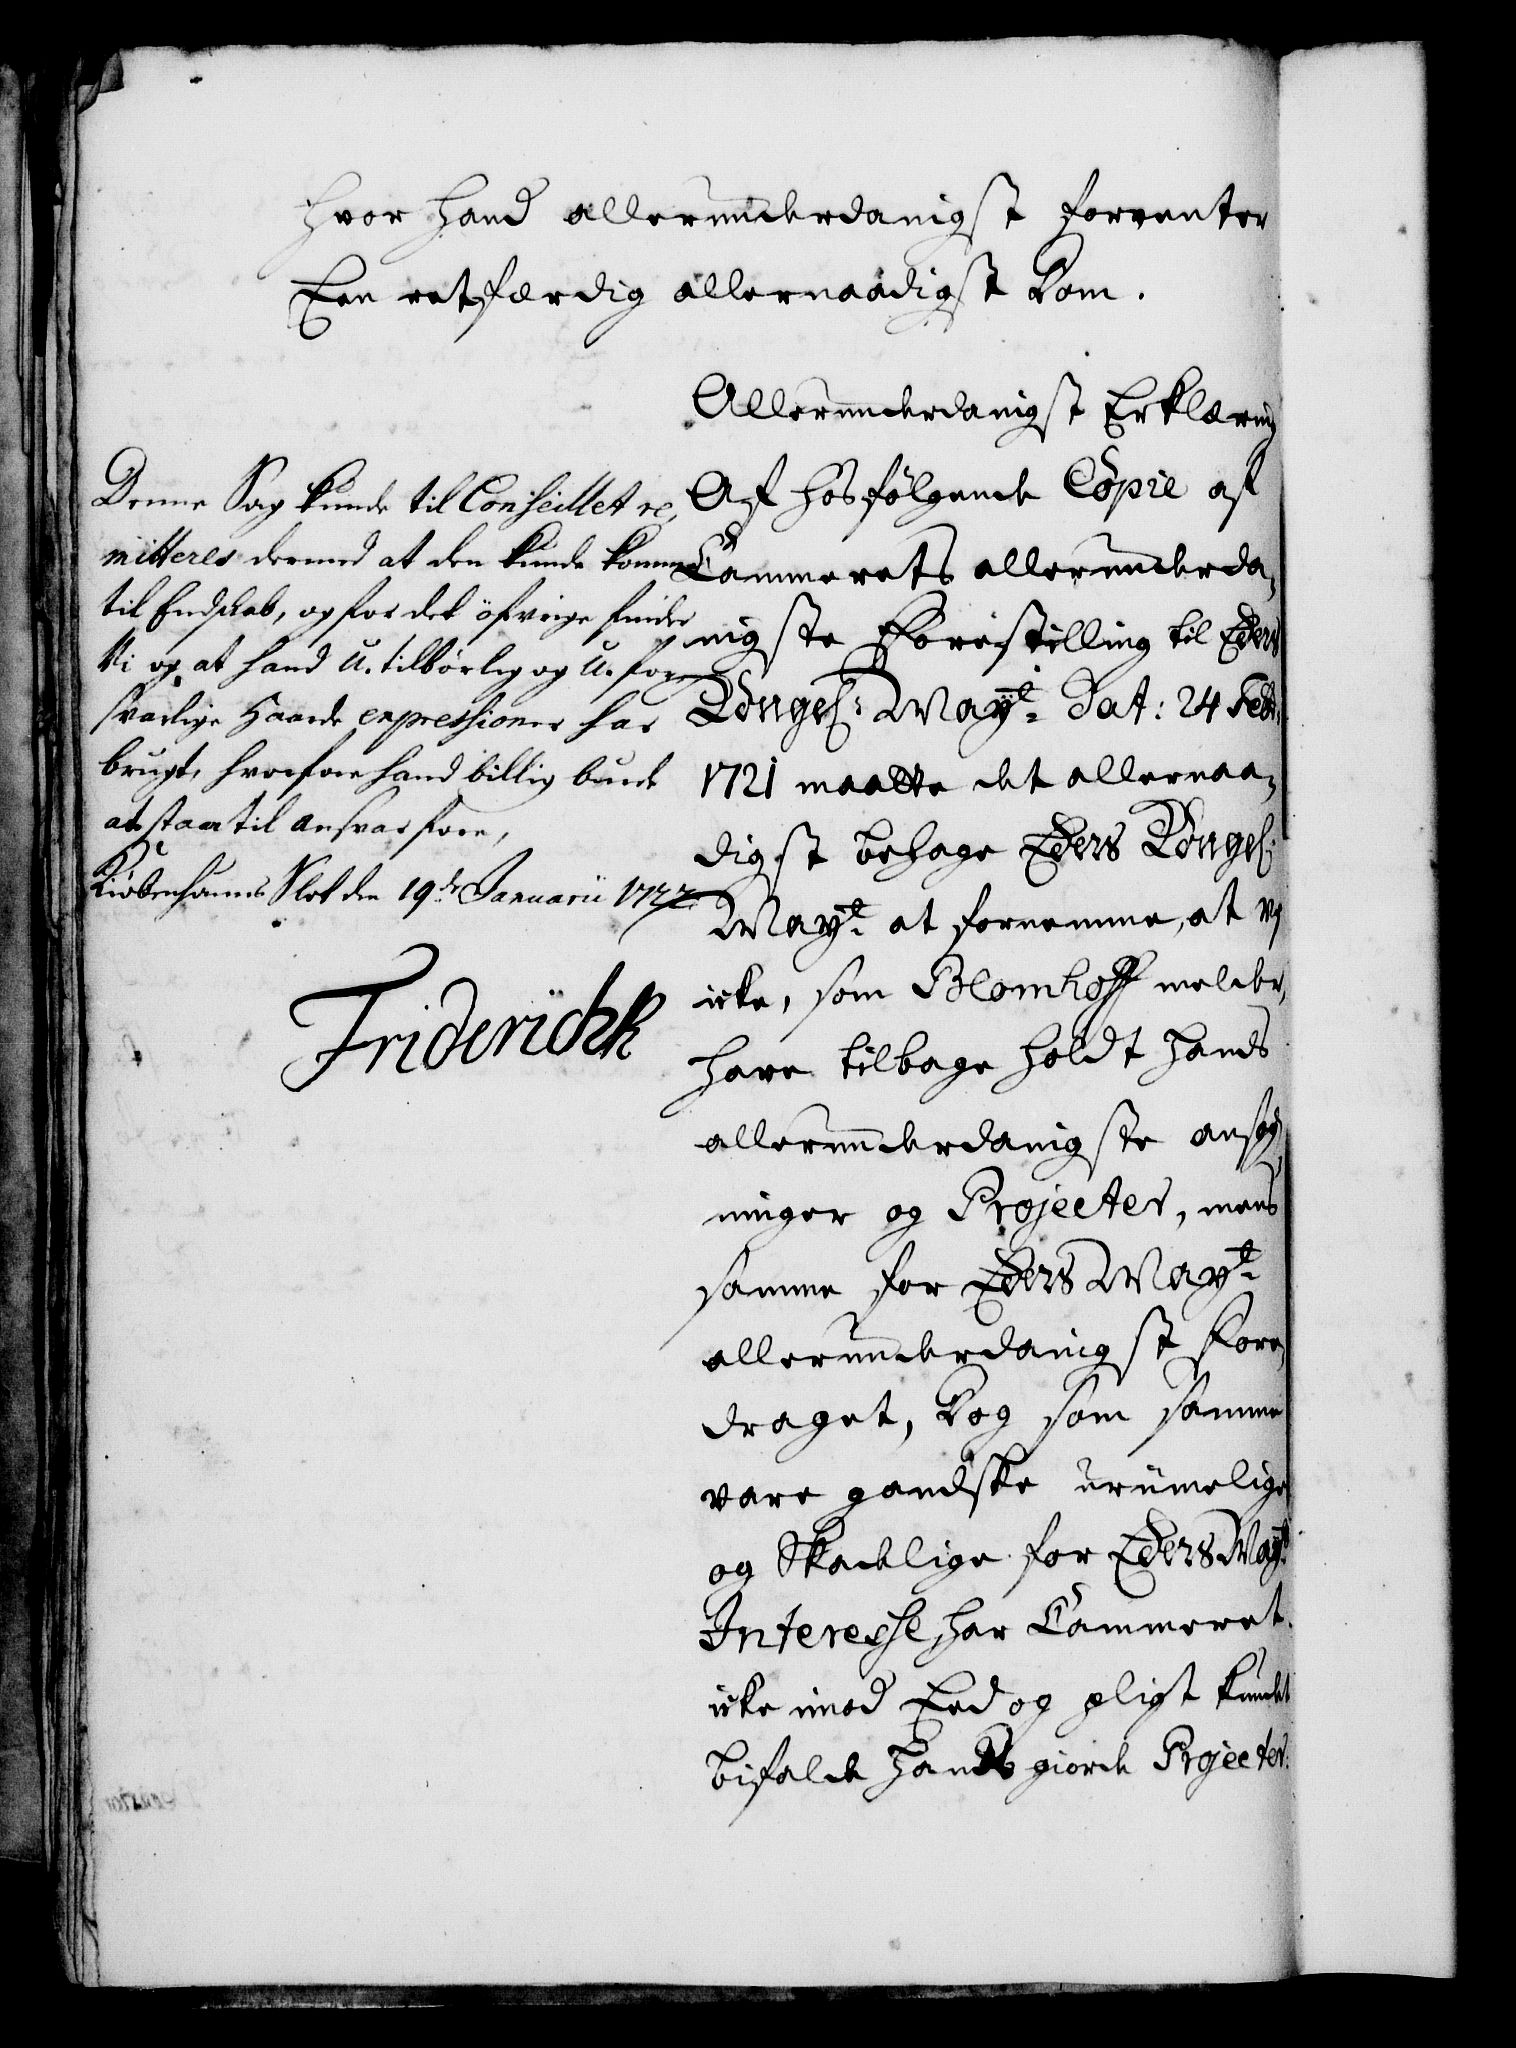 hvor hand allerunderdanigst forventer
Een retfærdig allernaadigst Dom.
Denne Sag kunde til Conseillet re,
mitteres dermed at den kunde komme
til Endskab, og for det öfrige finder
Vi og at hand U-tilbörlig og U-for,
svarlige Haarde expressioner har
brugt, hvorfore hand billig burde
at staae til ansvar fore,
Kiøbenhauns Slot den 19de Januarii 1722
Friderichk
Allerunderdanigst Erklæring
Af hosfölgende Copie af
Cammerets allerunderda,
nigste Forestilling til Eders
Kongel: Mayt. Dat: 24 Febr.
1721 maatte det allernaa,
digst behage Eders Kongel:
Mayt. at fornemme, at vj
icke, som Blomhoff melder,
have tilbage holdt hands
allerunderdanigste ansøg,
ninger og Projecter, mens
samme for Eders Mayt.
allerunderdanigst fore,
draget, Dog som samme
vare gandske urimelige
og Skadelige for Eders Mayt.
Interesse har Cammeret
icke imod Eed og pligt kundet
bifalde hands giorde Projecter.